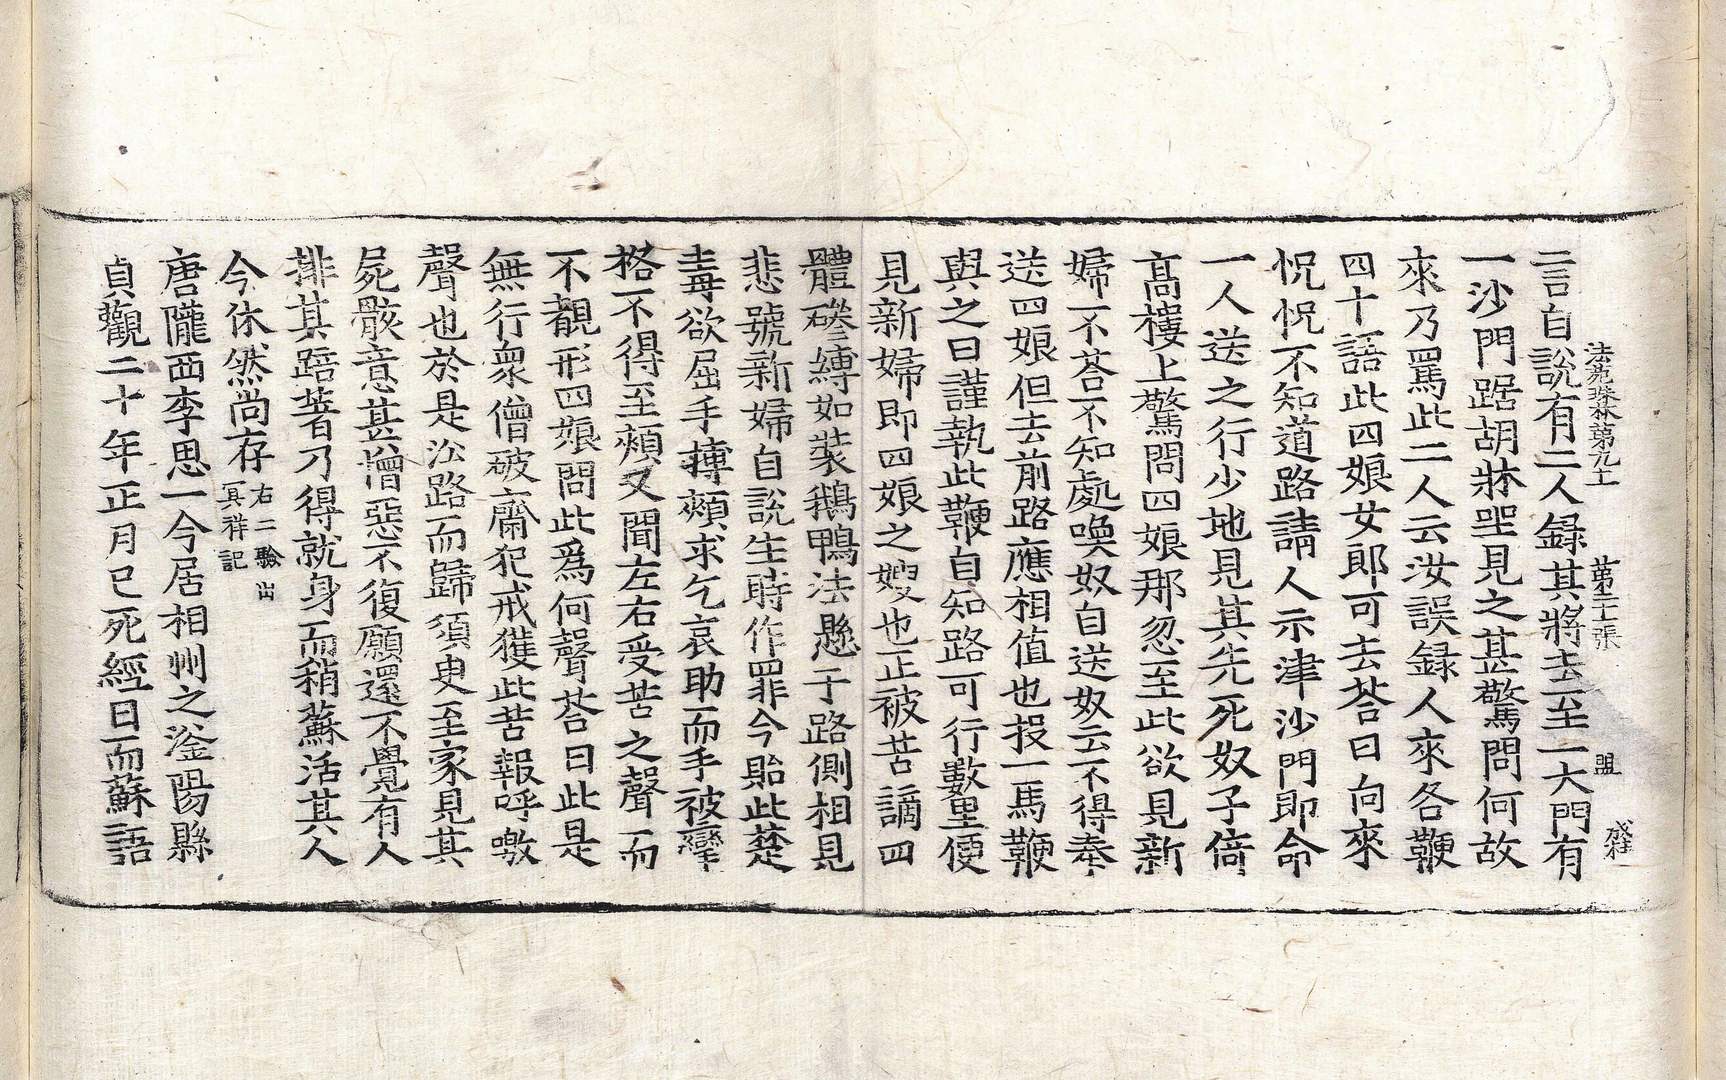 法苑珠林第九十　第三十張　盟
二言自說有二人錄其將去至一大門有
一沙門踞胡牀坐見之甚驚問何故
來乃罵此二人云汝誤録人來各鞭
四十語此四娘女郎可去荅曰向來
怳怳不知道路請人示津沙門即命
一人送之行少地見其先死奴子倚
髙樓上驚問四娘那忽至此欲見新
婦不荅不知處喚奴自送奴云不得奉
送四娘但去前路應相值也投一馬鞭
與之曰謹執此鞭自知路可行數里便
見新婦即四娘之嫂也正被苦謫四
體磔縛如裝鵝鴨法懸于路側相見
悲號新婦自說生時作罪今貽此楚
毒欲屈手搏頰求乞哀助而手被攣
格不得至頰又聞左右受苦之聲而
不覩形四娘問此爲何聲荅曰此是
無行衆僧破齋犯戒獲此苦報呼噭
聲也於是㳂路而歸須臾至家見其
屍骸意甚憎惡不復願還不覺有人
排其踣著乃得就身而稍蘇活其人
今休然尚存右二驗出
冥祥記
唐隴西李思一今居相州之滏陽縣
貞觀二十年正月已死經日而蘇語